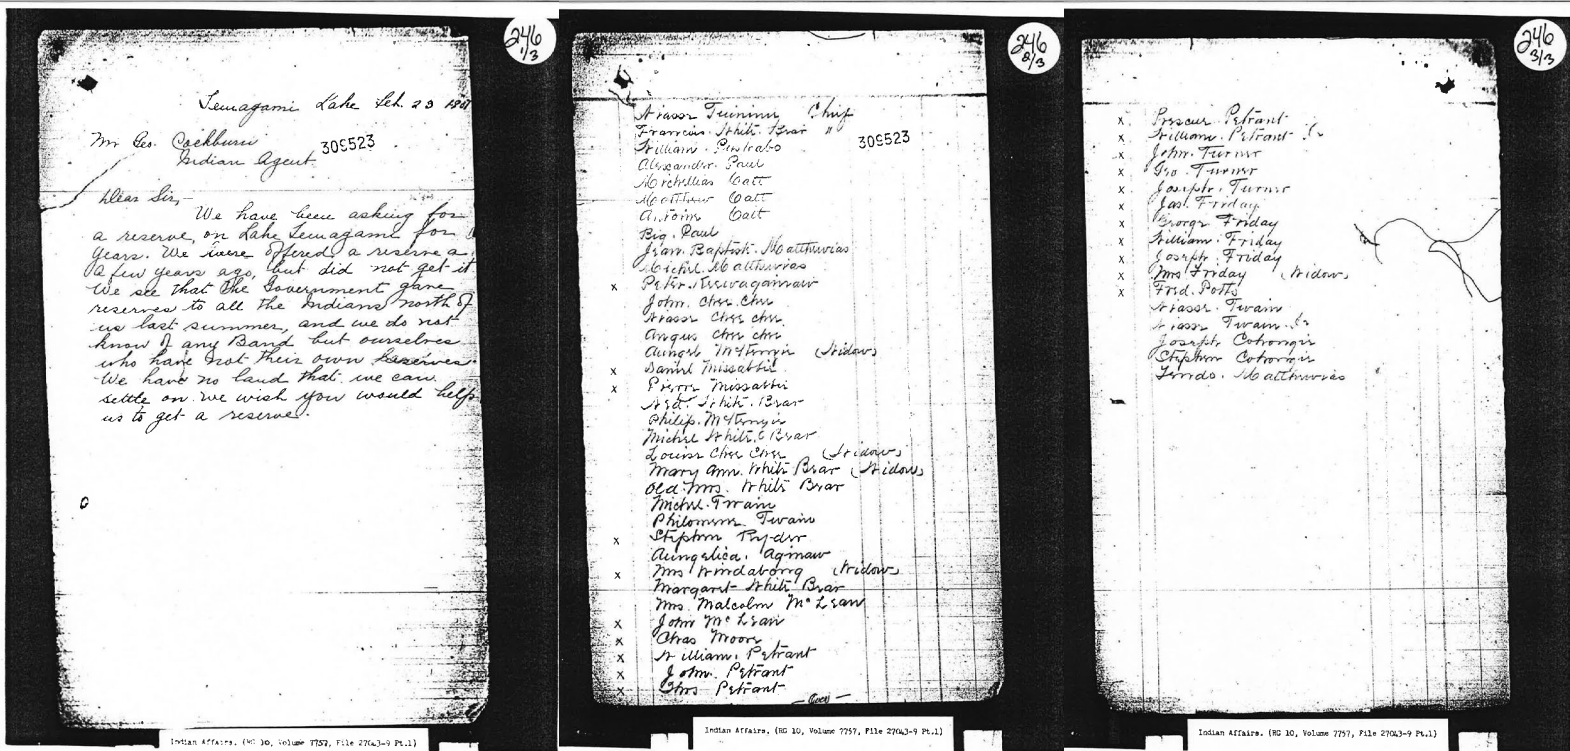 246
1/3
Temagami Lake Feb. 23 1907
Mr Geo. Cockburn
Indian Agent.
309523
Dear Sir,-
We have been asking for
a reserve, on Lake Temagami for
years. We were offered a reserve a
a few years ago, but did not get it
We see that the Government gave
reserves to all the Indians north of
us last summer, and we do not
know of any Band but ourselves
who have not their own Reserves
We have no land that we can
settle on. We wish you would help
us to get a reserve.
Indian Affairs. (RG 10, Volume 7757, File 27043-9 Pt.1)
246
2/3
Chief
Francois White Bear "
309523
William
Alexander Paul
Catt
Matthew Catt
Antoine Catt
Big Paul
Jean Baptist Matthewias
Michel Matthewias
x Peter
John Chee Chee
Chee Chee
Angus Chee Chee
McKenzie (Widow)
x Daniel Missabbi
x Pierre Missabbi
Ned White Bear
Philip McKenzie
Michel White Bear
Louise Chee Chee (Widow)
Mary Ann White Bear (Widow)
Old Mrs. White Bear
Michel Twain
Philomene Twain
x Stephen Ryder
Aungelica Aginaw
x Mrs Windabong (Widow)
Margaret White Bear
Mrs. Malcolm McLean
x John McLean
x Chas Moore
x William. Petrant
x John. Petrant
x Petrant
Over
Indian Affairs. (RG 10, Volume 7757, File 27043-9 Pt.1)
246
3/3
x Petrant
x William. Petrant Jr
x John. Turner
x Geo. Turner
x Joseph. Turner
x Jas. Friday
x George Friday
x William. Friday
x Joseph. Friday
x Mrs Friday (Widow)
x Fred. Potts
Twain
Twain Jr
Joseph Cohongie
Stephen Cohongie
Matthewias
Indian Affairs. (RG 10, Volume 7757, File 27043-9 Pt.1)